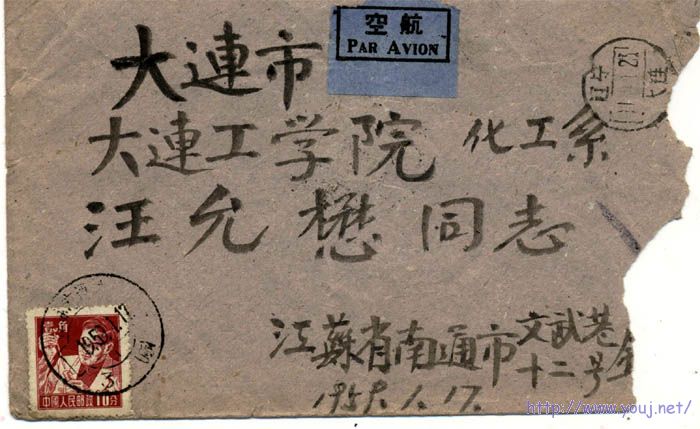 航空
PAR AVION
大連市
大連工学院 化工系
汪允懋同志
江蘇省南通市文武巷
十二号
1959.1.17.
壹角
中國人民郵政 10分
http://www.youj.net/